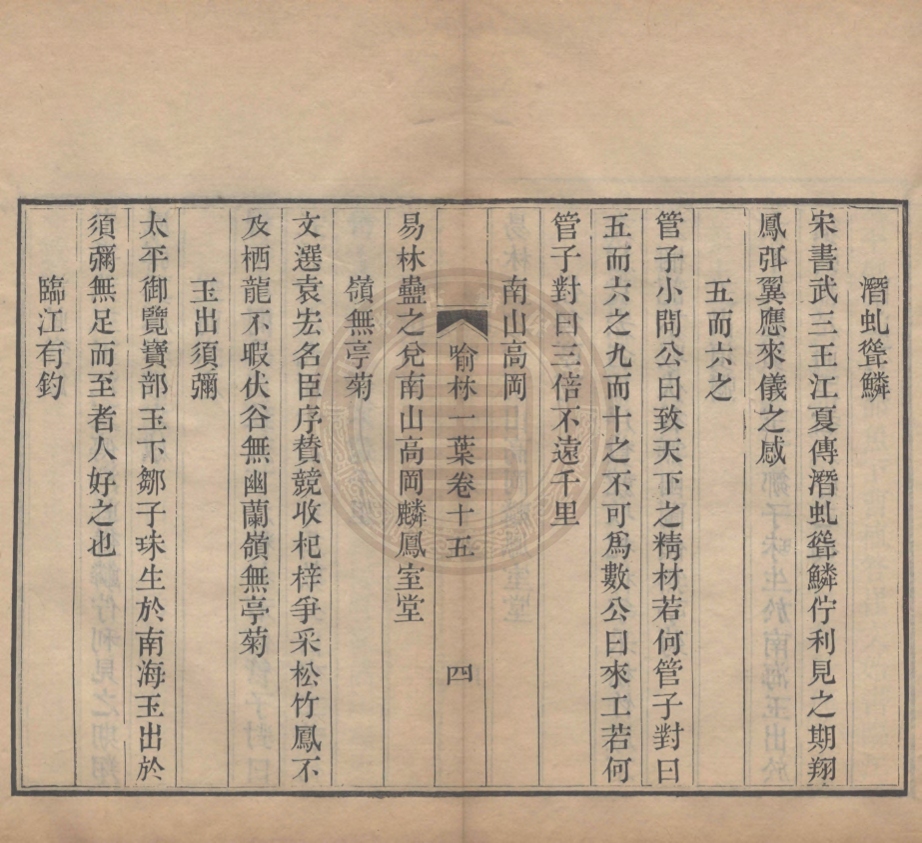 潛虬聳鱗
宋書武三王江夏傳潛虬聳鱗佇利見之期翔
鳳弭翼應來儀之感
五而六之
管子小問公曰致天下之精材若何管子對曰
五而六之九而十之不可爲數公曰來工若何
管子對曰三倍不遠千里
南山高岡
喻林一葉卷十五
四
易林蠱之兌南山高岡麟鳳室堂
嶺無亭菊
文選袁宏名臣序賛競收杞梓爭采松竹鳳不
及栖龍不暇伏谷無幽蘭嶺無亭菊
玉出須彌
太平御覽寶部玉下鄒子珠生於南海玉出於
須彌無足而至者人好之也
臨江有釣